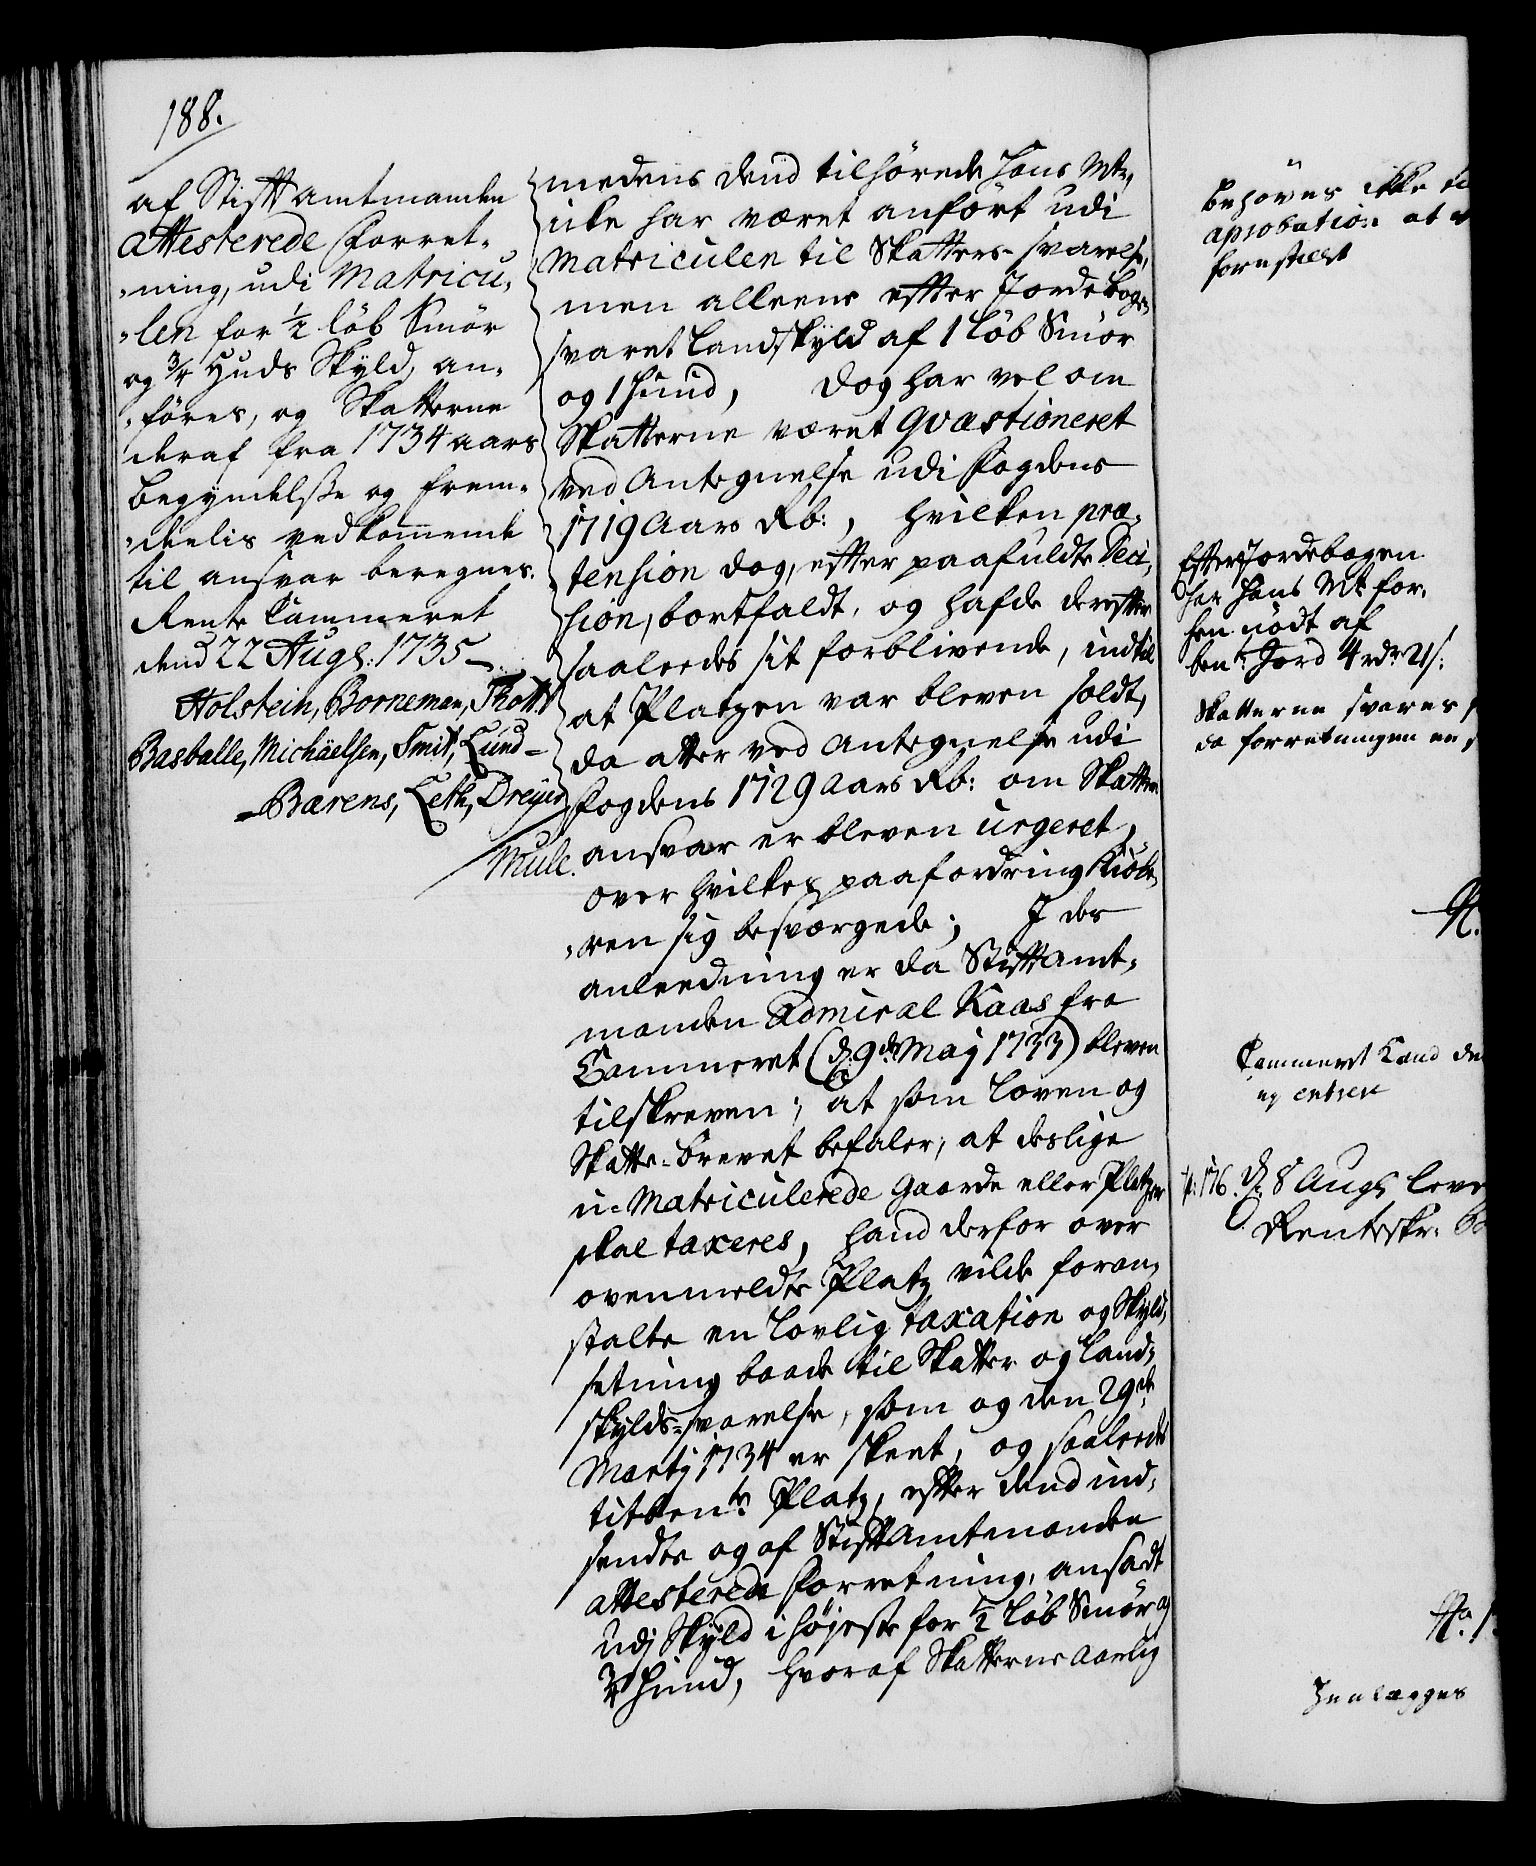 188.
af Stiftamtmanden
attesterede Forret-
-ning, udi Matricu-
-len for ½ löb Smör
og ¾ Huds Skyld, an-
-föres, og Skatterne
deraf fra 1734 aars
begyndelse og frem-
-deelis vedkommende
til ansvar beregnes.
Rente Cammeret
dend 22 Aug: 1735
Holstein, Borneman, Thott
Basballe, Michäelsen, Smit, Lund-
-Bærens, Leth, Dreyer
Mule.
medens dend tilhørede Hans Mt,
icke har været anført udi
Matriculen til Skatters svarelse,
men alleene efter Jordebogen
svaret Landskyld af 1 Löb Smör
og 1 Huud, dog har vel om
Skatterne været qvæstioneret
ved Antegnelse udi Fogdens
1719 Aars Rb:, hvilken præ-
tension dog, efter paafuldte Deci-
sion, bortfaldt, og hafde derefter
saaleedes sit forblivende, indtil
at Platzen var bleven soldt,
da atter ved Antegnelse udi
Fogdens 1729 Aars Rb: om Skatters
ansvar er bleven urgeret,
over hvilken paafordring Kiöbe-
-ren sig besværgede; I des
anleedning er da Stiftamt-
manden Admiral Kaas fra
Cammeret (d. 9de Maj 1733) bleven
tilskreven; at som Loven og
Skatte-brevet befaler, at deslige
u-Matriculerede Gaarde eller Platzer
skal taxeres, hand derfor over
ovenmeldte Platz vilde foran-
stalte en lovlig taxation og Skyld-
setning baade til Skatter og Land-
skylds-svarelse, som og den 29de
Martj 1734 er skeet, og saaleedes
titben.te Platz, efter dend ind-
sendte og af Stiftamtmanden
attesterede Forretning, ansadt
udj Skyld i høyeste for ½ Löb Smör og
¾ Huud, hvoraf Skatterne aarlig
behöves ikke
aprobation at
forestillet
Efter Jordebogen
har Hans Mt for-
hen nödt af
ben.te Jord 4 rdr 21 s:
Skatterne svares
da forretningen
Cammeret Kand
ny
p: 176. d. 8 Aug
Renteskr.
Henlægges